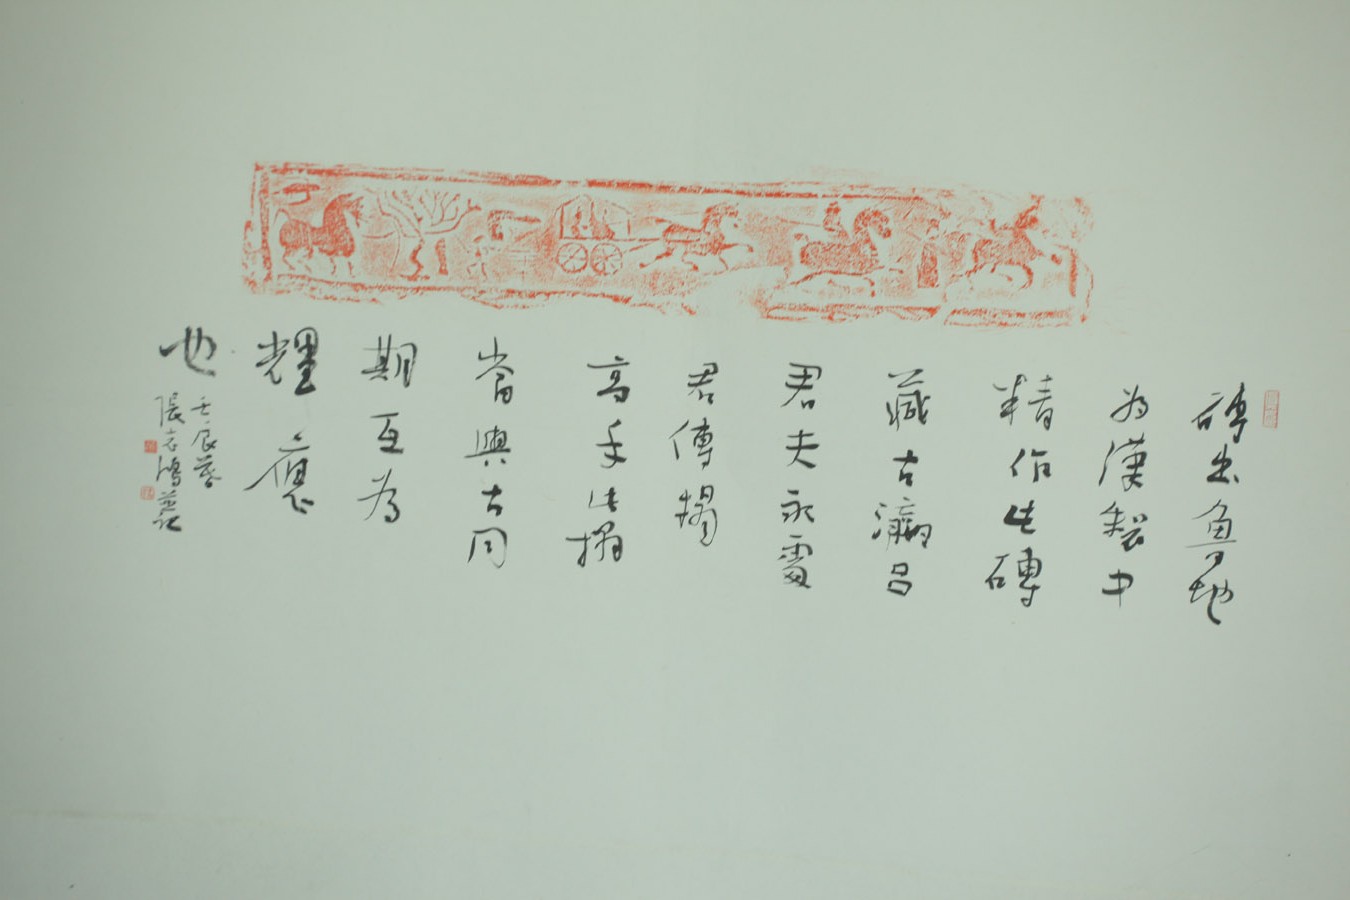 磚出魯地
為漢製中
精作此磚
藏古瀛呂
君夫永雷
君傳揭
高手此搨
當與古同
期互為
耀應
也
壬辰暮
張志鴻並記